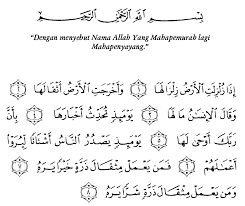 بِسْمِ ٱللَّهِ ٱلرَّحْمَٰنِ ٱلرَّحِيمِ
"Dengan menyebut Nama Allah Yang Mahapemurah lagi
Mahapenyayang."
إِذَا زُلْزِلَتِ ٱلْأَرْضُ زِلْزَالَهَا ١ وَأَخْرَجَتِ ٱلْأَرْضُ أَثْقَالَهَا ٢
وَقَالَ ٱلْإِنسَٰنُ مَا لَهَا ٣ يَوْمَئِذٍ تُحَدِّثُ أَخْبَارَهَا ٤ بِأَنَّ
رَبَّكَ أَوْحَىٰ لَهَا ٥ يَوْمَئِذٍ يَصْدُرُ ٱلنَّاسُ أَشْتَاتًا لِّيُرَوْا۟
أَعْمَٰلَهُمْ ٦ فَمَن يَعْمَلْ مِثْقَالَ ذَرَّةٍ خَيْرًا يَرَهُۥ ٧
وَمَن يَعْمَلْ مِثْقَالَ ذَرَّةٍ شَرًّا يَرَهُۥ ٨